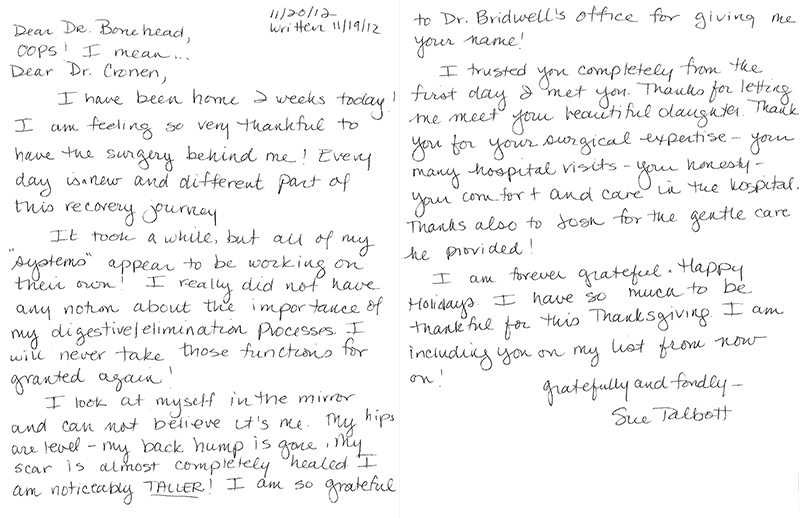 11/20/12
Written 11/19/12
Dear De. Bonehead,
OOPS! I mean...
Dear Dr. Cronen,
I have been home 2 weeks today!
I am feeling so very thankful to
have the surgery behind me! Every
day is new and different part of
this recovery journey
It took a while, but all of my
"systems" appear to be working on
their own! I really did not have
any notion about the importance of
my digestive/elimination processes. I
will never take those functions for
granted again!
I look at myself in the mirror
and can not believe it's me. My hips
are level - my back hump is gone. My
scar is almost completely healed I
am noticeably TALLER! I am so grateful
to Dr. Bridwell's office for giving me
your name!
I trusted you completely from the
first day I met you. Thanks for letting
me meet your beautiful daughter. Thank
you for your surgical expertise - your
many hospital visits - your honesty -
your comfort and care in the hospital.
Thanks also to Josh for the gentle care
he provided!
I am forever grateful. Happy
Holidays. I have so much to be
thankful for this Thanksgiving. I am
including you on my list from now
on!
gratefully and fondly -
Sue Talbott